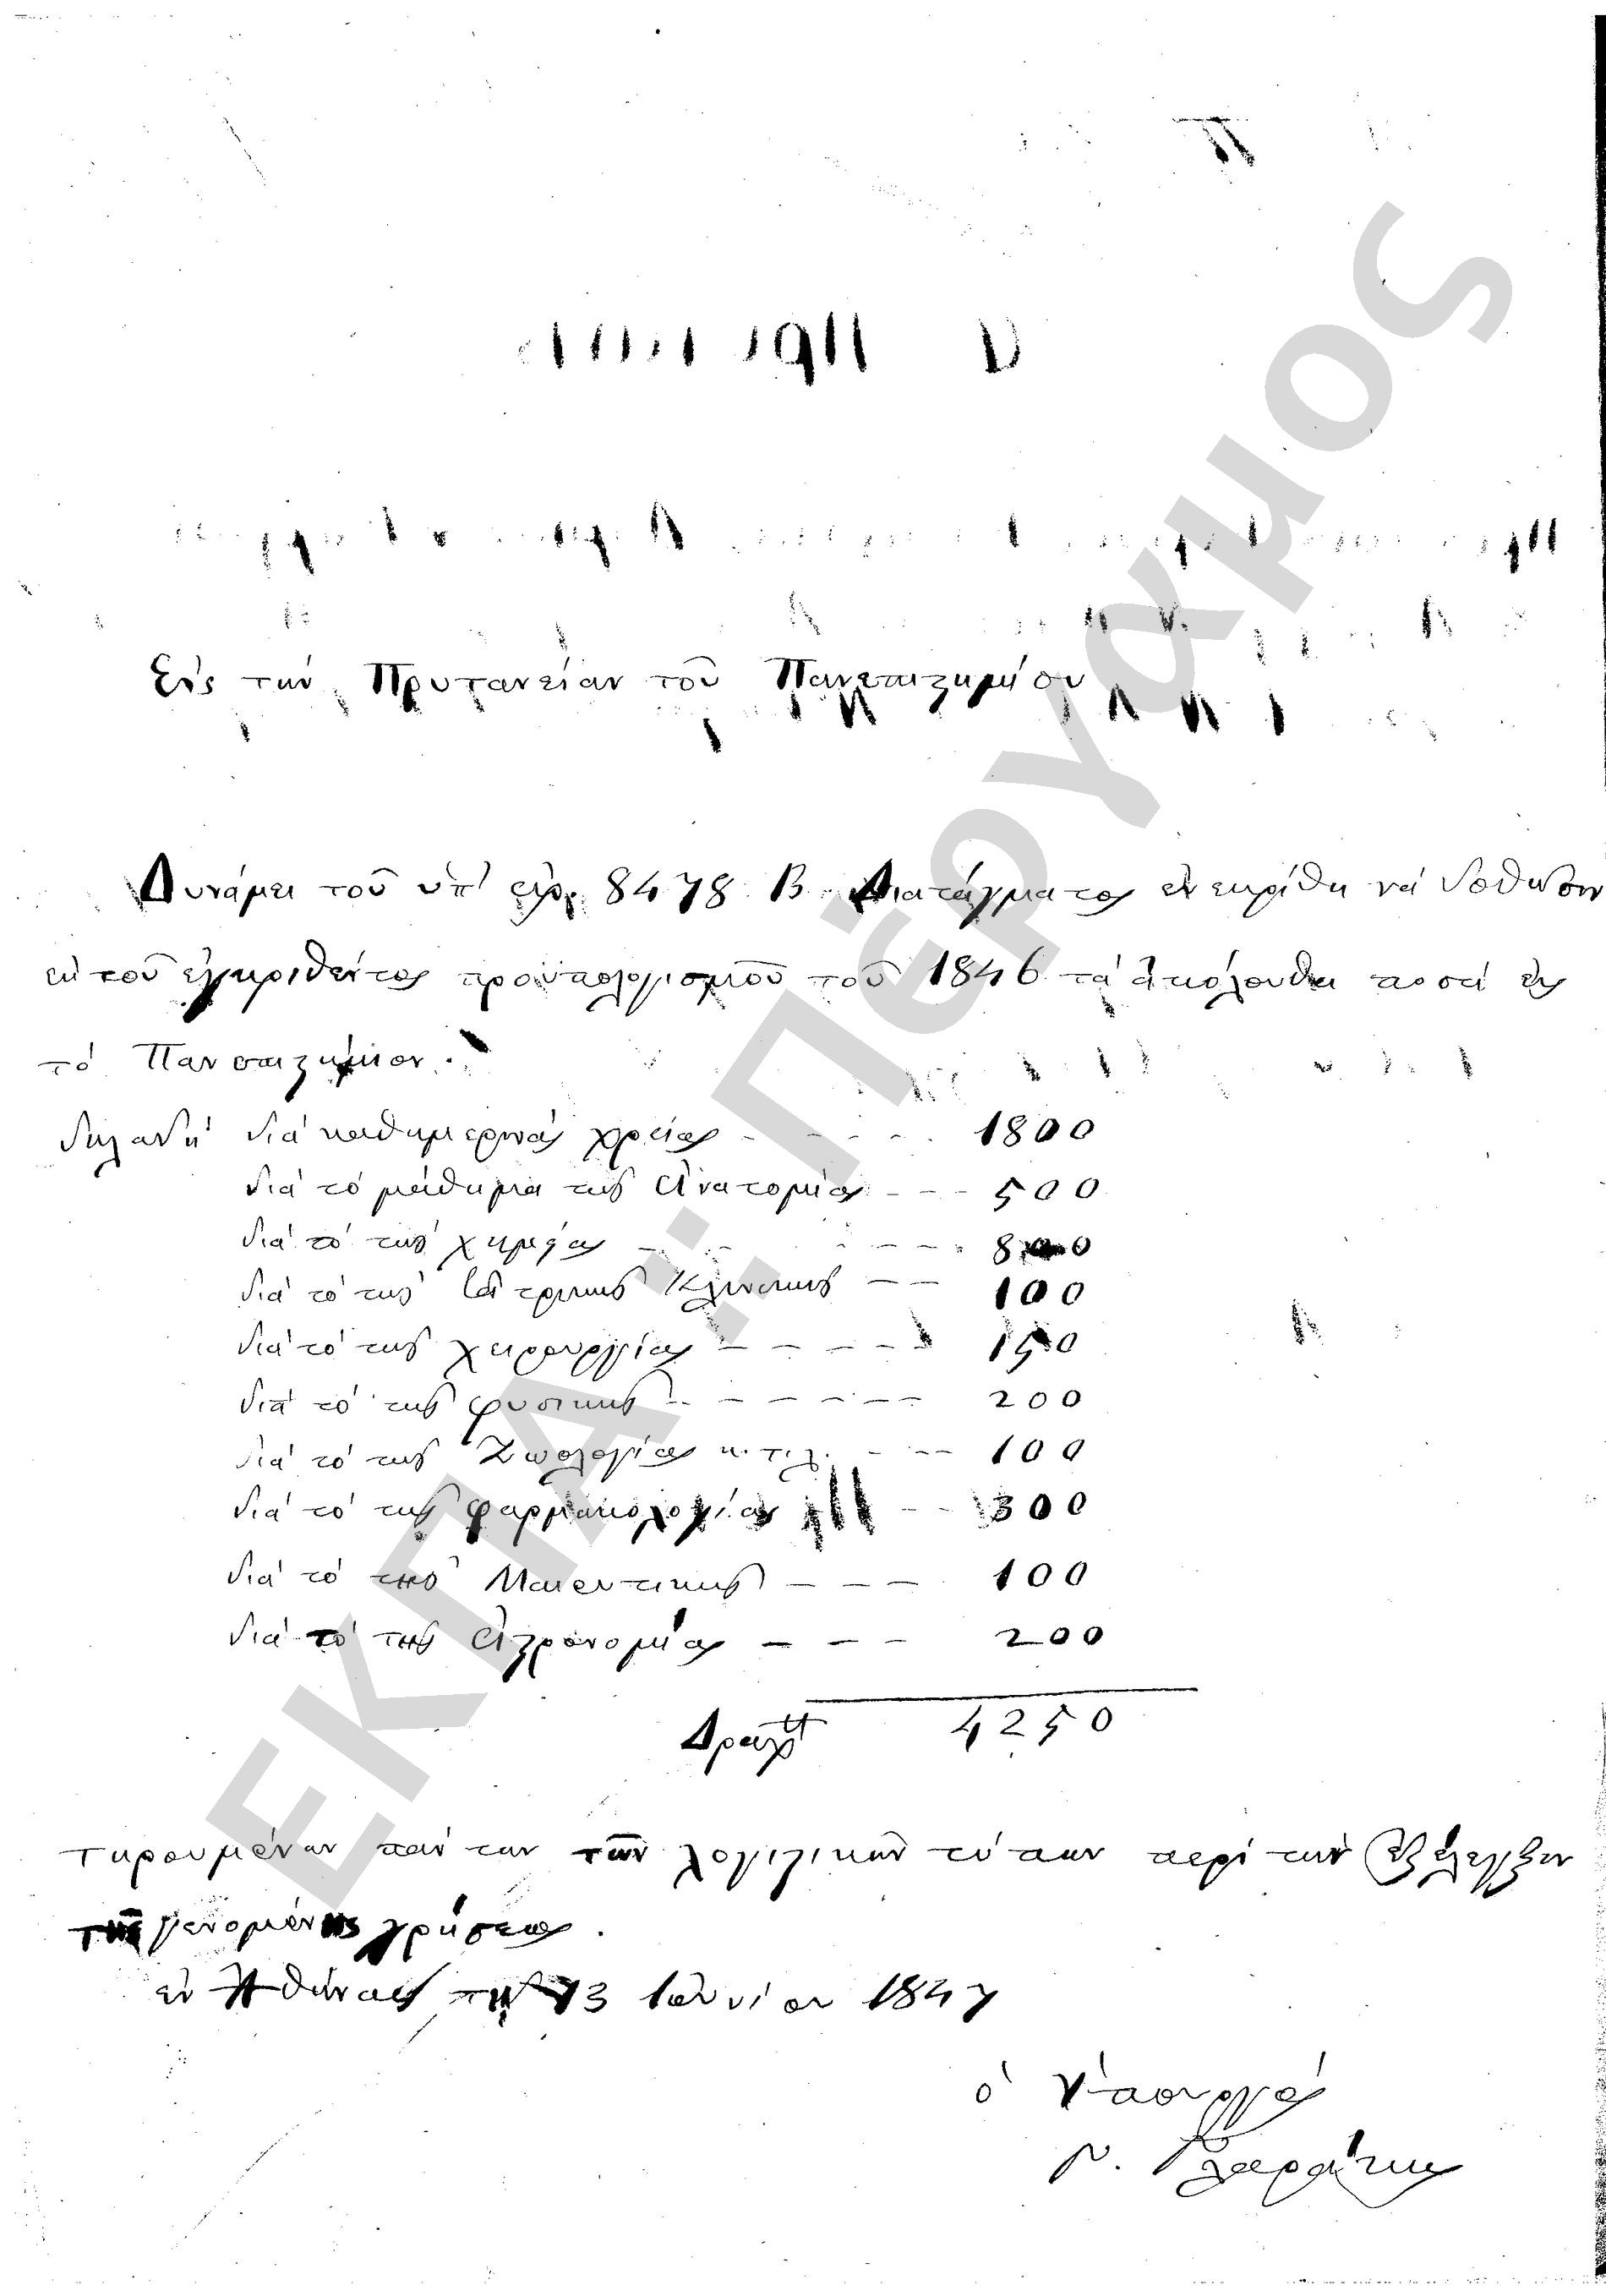 Εἰς τὴν Πρυτανείαν τοῦ Πανεπιστημίου
Δυνάμει τοῦ ὑπ' ἀρ. 8478 Β. Διατάγματος ἐνεκρίθη νά δοθῶσιν
ἐκ τοῦ ἐγκριθέντος προϋπολογισμοῦ τοῦ 1846 τά ἀκόλουθα ποσά εἰς
τό Πανεπιστήμιον.
δηλαδή διά καθημερινάς χρείας - - - - 1800
διά τό μάθημα τῆς Ἀνατομίας - - - 500
διά τό τῆς χημείας - - - - 800
διά τό τῆς Ἰατρικῆς Κλινικῆς - - 100
διά τό τῆς χειρουργίας - - - - - 150
διά τό τῆς φυσικῆς - - - - - - 200
διά τό τῆς Ζωολογίας κ.τ.λ. - - - 100
διά τό τῆς φαρμακολογίας - - 300
διά τό τῆς Μαιευτικῆς - - - 100
διά τό τῆς Ἀστρονομίας - - - 200
Δραχ 4250
τηρουμένων πάντων τῶν λογιστικῶν τύπων περί τήν ἐξέλεγξιν
τῆς γενομένης χρήσεως.
ἐν Ἀθήναις τήν 13 Ἰουνίου 1847
ὁ Ὑπουργός
Γ. Γλαράκης
ΕΚΠΑ: Πέργαμος